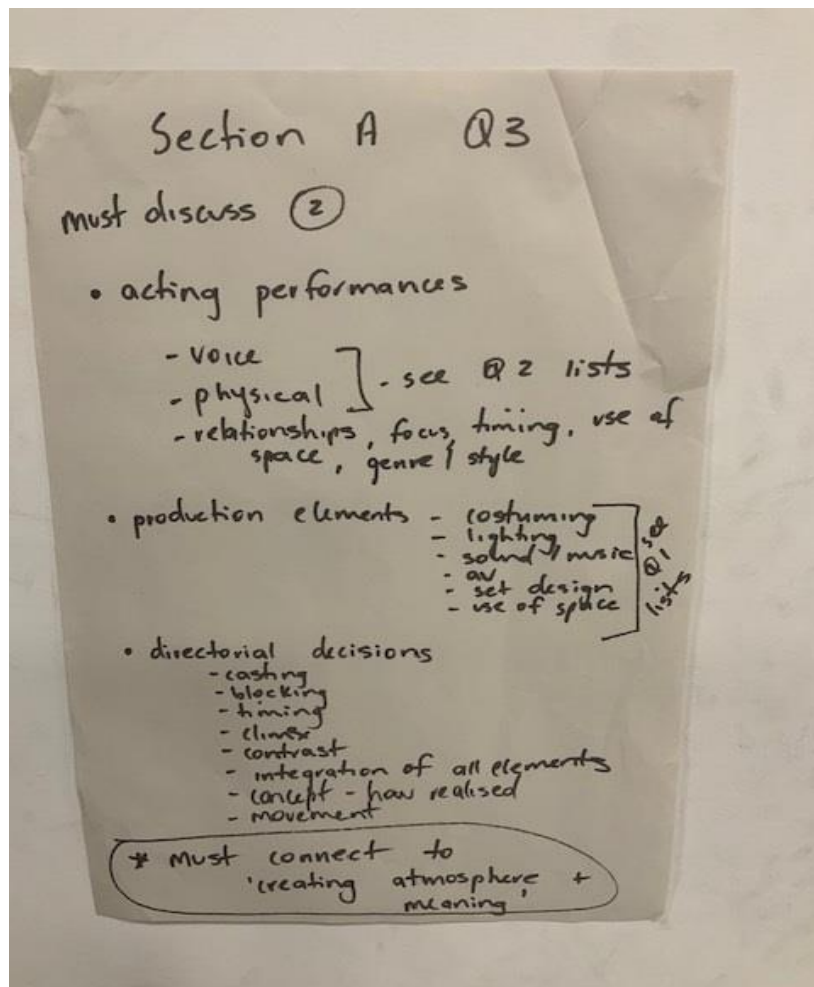 Section A Q3
must discuss 2
• acting performances
- voice
- physical - see Q2 lists
- relationships, focus, timing, use of
space, genre / style
• production elements - costuming
- lighting
- sound / music
- av
- set design
- use of space
see Q1 lists
• directorial decisions
- casting
- blocking
- timing
- climax
- contrast
- integration of all elements
- concept - how realised
- movement
* Must connect to
'creating atmosphere +
meaning'